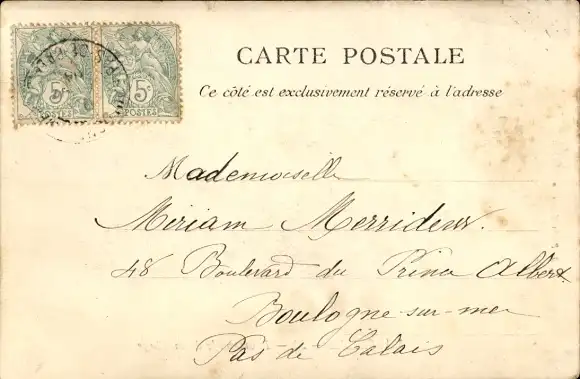 CARTE POSTALE
Ce côté est exclusivement réservé à l'adresse
5c 5c
POSTES
Mademoiselle
Miriam Merridew.
48 Boulevard du Prince Albert
Boulogne-sur-mer
Pas de Calais